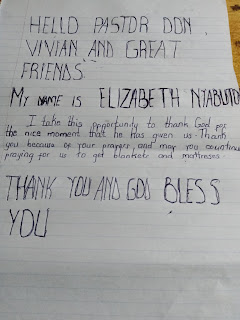 HELLO PASTOR DON,
VIVIAN AND GREAT
FRIENDS
MY NAME IS ELIZABETH NJABUTO
I take this opportunity to thank God for
the nice moment that he has given us. Thank
you because of your prayers, and may you countinue
praying for us to get blankets and matresses.
THANK YOU AND GOD BLESS
YOU